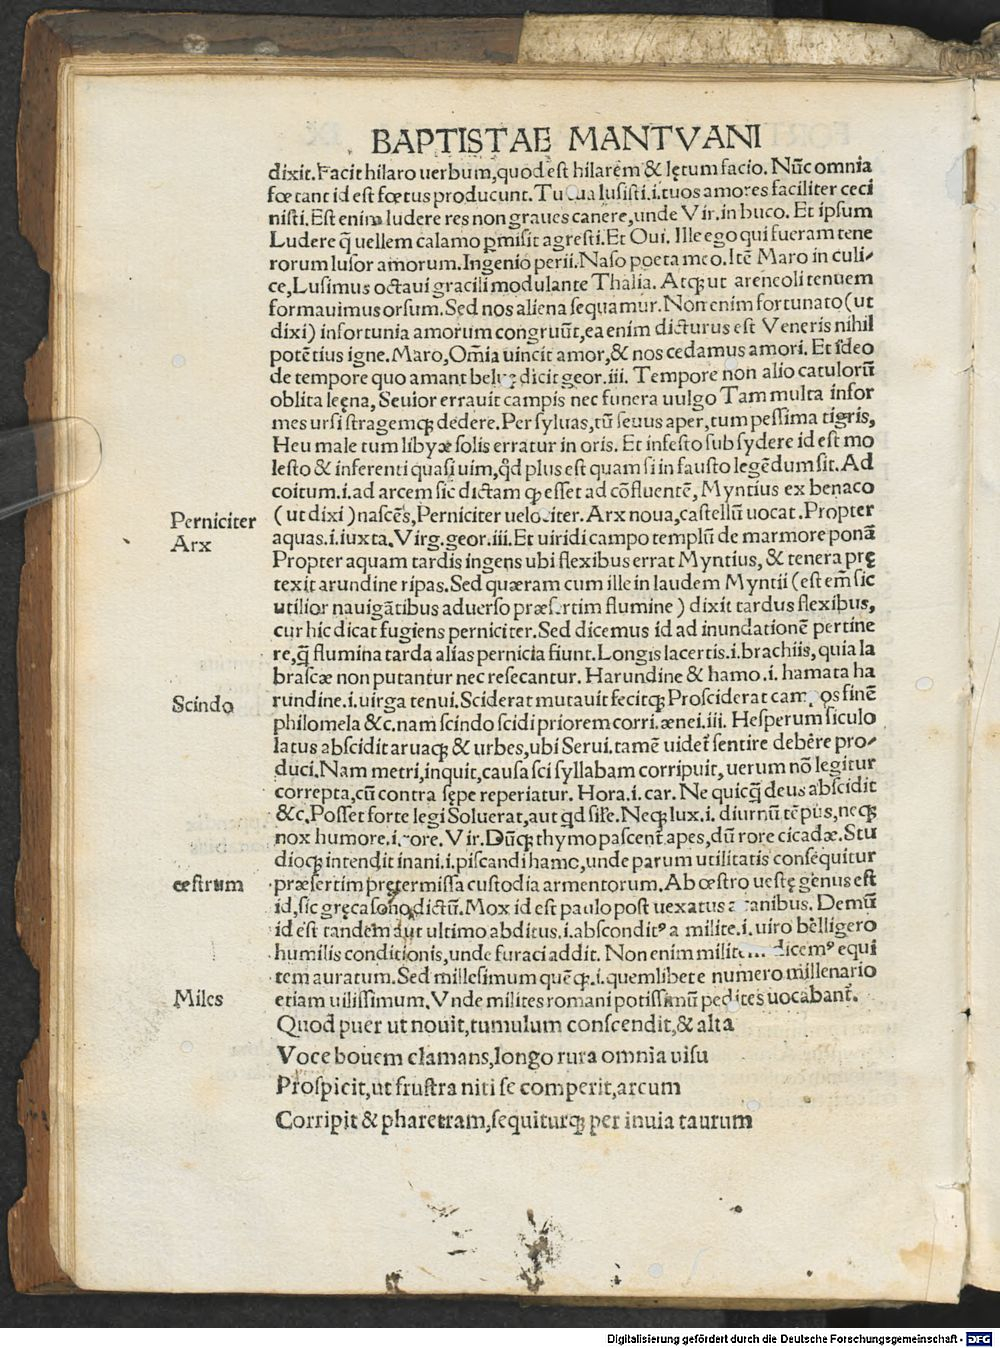 BAPTISTAE MANTVANI
dixit. Facit hilaro uerbum, quod est hilarem & lętum facio. Nūc omnia
fœtant id est fœtus producunt. Tu tua lusisti. i. tuos amores faciliter ceci
nisti. Est enim ludere res non graues canere, unde Vir. in buco. Et ipsum
Ludere q̃ uellem calamo p̱misit agresti. Et Oui. Ille ego qui fueram tene
rorum lusor amorum. Ingenio perii. Naso poeta meo. Itē Maro in culi⸗
ce, Lusimus octaui gracili modulante Thalia. Atqȝ ut areneoli tenuem
formauimus orsum. Sed nos aliena sequamur. Non enim fortunato (ut
dixi) infortunia amorum congruūt, ea enim dicturus est Veneris nihil
potētius igne. Maro, Om̄ia uincit amor, & nos cedamus amori. Et ideo
de tempore quo amant belue dicit geor. iii. Tempore non alio catulorū
oblita leęna, Seuior errauit campis nec funera uulgo Tam multa infor
mes ursi stragemqȝ dedere. Per syluas, tū seuus aper, tum pessima tigris,
Heu male tum libyæ solis erratur in oris. Et infesto sub sydere id est mo
lesto & inferenti quasi uim, qd̓ plus est quam si in fausto legēdum sit. Ad
coitum. i. ad arcem sic dictam qȝ esset ad cōfluentē, Myntius ex benaco
Perniciter (ut dixi) nascēs, Perniciter uelociter. Arx noua, castellū uocat. Propter
Arx aquas. i. iuxta. Virg. geor. iii. Et uiridi campo templū de marmore ponā
Propter aquam tardis ingens ubi flexibus errat Myntius, & tenera prę
texit arundine ripas. Sed quæram cum ille in laudem Myntii (est em̄ sic
utilior nauigātibus aduerso præsertim flumine) dixit tardus flexibus,
cur hic dicat fugiens perniciter. Sed dicemus id ad inundationē pertine
re, q̃ flumina tarda alias pernicia fiunt. Longis lacertis. i. brachiis, quia la
brascæ non putantur nec resecantur. Harundine & hamo. i. hamata ha
Scindo rundine. i. uirga tenui. Sciderat mutauit fecitqȝ Prosciderat campos sinē
philomela &c. nam scindo scidi priorem corri. ænei. iii. Hesperum siculo
latus abscidit aruaqȝ & urbes, ubi Serui. tamē uidet̃ sentire debêre pro⸗
duci. Nam metri, inquit, causa sci syllabam corripuit, uerum nō legitur
correpta, cū contra sępe reperiatur. Hora. i. car. Ne quicq̃ deus abscidit
&c. Posset forte legi Soluerat, aut qd sil̃e. Neqȝ lux. i. diurnū tēpus, neqȝ
nox humore. i. rore. Vir. Dūqȝ thymo pascent̃ apes, dū rore cicadæ. Stu
dioqȝ intendit inani. i. piscandi hamo, unde parum utilitatis consequitur
œstrum præsertim prętermissa custodia armentorum. Ab œstro uestę genus est
id, sic gręca sono dictū. Mox id est paulo post uexatus a canibus. Demū
id est tandem aut ultimo abditus. i. abscondit⁹ a milite. i. uiro belligero
humilis conditionis, unde furaci addit. Non enim militem dicem⁹ equi
tem auratum. Sed millesimum quēqȝ. i. quemlibet e numero millenario
Miles etiam uilissimum. Vnde milites romani potissimū pedites uocabant̃.
Quod puer ut nouit, tumulum conscendit, & alta
Voce bouem clamans, longo rura omnia uisu
Prospicit, ut frustra niti se comperit, arcum
Corripit & pharetram, sequiturqȝ per inuia taurum
Digitalisierung gefördert durch die Deutsche Forschungsgemeinschaft - DFG